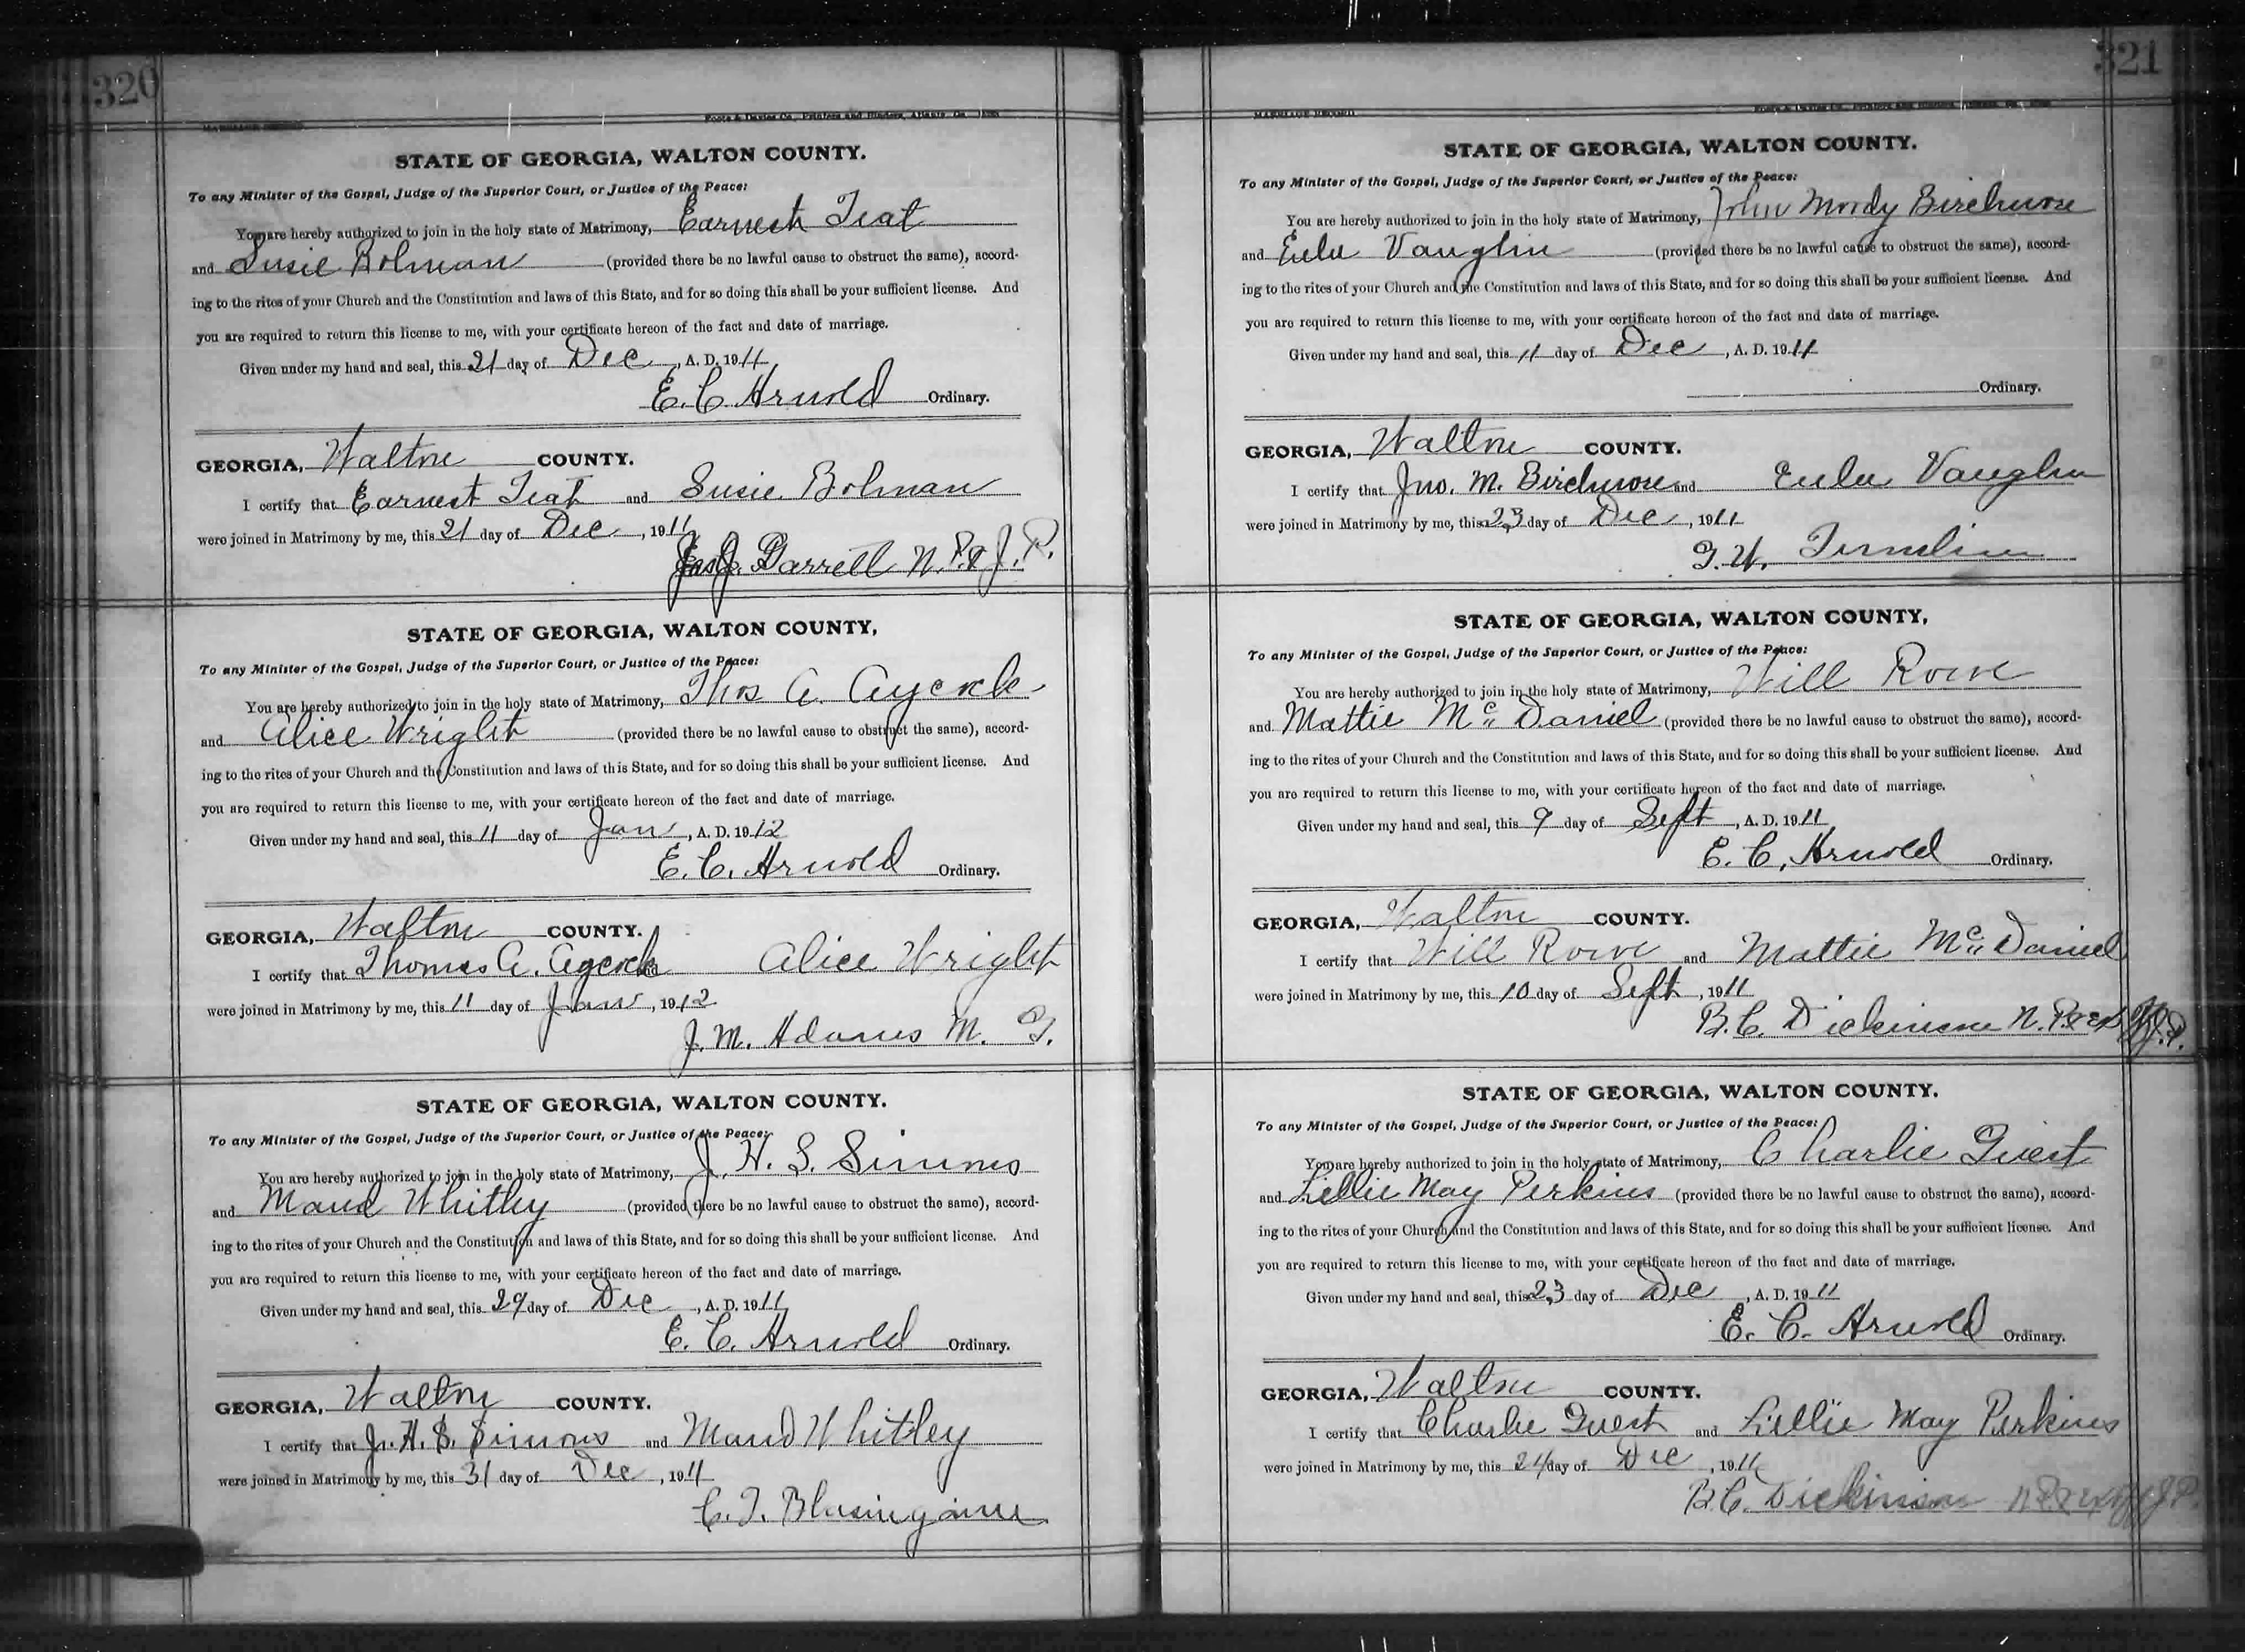 320
MARRIAGE RECORD
Foote & Davies Co., Printers and Binders, Atlanta, Ga.
STATE OF GEORGIA, WALTON COUNTY.
To any Minister of the Gospel, Judge of the Superior Court, or Justice of the Peace:
You are hereby authorized to join in the holy state of Matrimony, Earnest Teat
and Susie Bolman (provided there be no lawful cause to obstruct the same), accord-
ing to the rites of your Church and the Constitution and laws of this State, and for so doing this shall be your sufficient license. And
you are required to return this license to me, with your certificate hereon of the fact and date of marriage.
Given under my hand and seal, this 21 day of Dec, A. D. 1911
E. C. Arnold Ordinary.
GEORGIA, Walton COUNTY.
I certify that Earnest Teat and Susie Bolman
were joined in Matrimony by me, this 21 day of Dec, 1911
Garrett N. P. & J. P.
STATE OF GEORGIA, WALTON COUNTY,
To any Minister of the Gospel, Judge of the Superior Court, or Justice of the Peace:
You are hereby authorized to join in the holy state of Matrimony, Thos A. Aycock
and Alice Wright (provided there be no lawful cause to obstruct the same), accord-
ing to the rites of your Church and the Constitution and laws of this State, and for so doing this shall be your sufficient license. And
you are required to return this license to me, with your certificate hereon of the fact and date of marriage.
Given under my hand and seal, this 11 day of Jan, A. D. 1912
E. C. Arnold Ordinary.
GEORGIA, Walton COUNTY.
I certify that Thomas A. Aycock and Alice Wright
were joined in Matrimony by me, this 11 day of Jan, 1912
J. M. Adams M. G.
STATE OF GEORGIA, WALTON COUNTY.
To any Minister of the Gospel, Judge of the Superior Court, or Justice of the Peace:
You are hereby authorized to join in the holy state of Matrimony, J. H. S. Simms
and Maud Whitley (provided there be no lawful cause to obstruct the same), accord-
ing to the rites of your Church and the Constitution and laws of this State, and for so doing this shall be your sufficient license. And
you are required to return this license to me, with your certificate hereon of the fact and date of marriage.
Given under my hand and seal, this 29 day of Dec, A. D. 1911
E. C. Arnold Ordinary.
GEORGIA, Walton COUNTY.
I certify that J. H. S. Simons and Maud Whitley
were joined in Matrimony by me, this 31 day of Dec, 1911
C. T. Blasingame
321
MARRIAGE RECORD
STATE OF GEORGIA, WALTON COUNTY.
To any Minister of the Gospel, Judge of the Superior Court, or Justice of the Peace:
You are hereby authorized to join in the holy state of Matrimony, John Moody Birchmore
and Eula Vaughn (provided there be no lawful cause to obstruct the same), accord-
ing to the rites of your Church and the Constitution and laws of this State, and for so doing this shall be your sufficient license. And
you are required to return this license to me, with your certificate hereon of the fact and date of marriage.
Given under my hand and seal, this 11 day of Dec, A. D. 1911
Ordinary.
GEORGIA, Walton COUNTY.
I certify that Jno. M. Birchmore and Eula Vaughn
were joined in Matrimony by me, this 23 day of Dec, 1911
G. W. Tumlin
STATE OF GEORGIA, WALTON COUNTY,
To any Minister of the Gospel, Judge of the Superior Court, or Justice of the Peace:
You are hereby authorized to join in the holy state of Matrimony, Will Rowe
and Mattie McDaniel (provided there be no lawful cause to obstruct the same), accord-
ing to the rites of your Church and the Constitution and laws of this State, and for so doing this shall be your sufficient license. And
you are required to return this license to me, with your certificate hereon of the fact and date of marriage.
Given under my hand and seal, this 9 day of Sept, A. D. 1911
E. C. Arnold Ordinary.
GEORGIA, Walton COUNTY.
I certify that Will Rowe and Mattie McDaniel
were joined in Matrimony by me, this 10 day of Sept, 1911
B. C. Dickinson N. P. & Ex J. P.
STATE OF GEORGIA, WALTON COUNTY.
To any Minister of the Gospel, Judge of the Superior Court, or Justice of the Peace:
You are hereby authorized to join in the holy state of Matrimony, Charlie Guest
and Lillie May Perkins (provided there be no lawful cause to obstruct the same), accord-
ing to the rites of your Church and the Constitution and laws of this State, and for so doing this shall be your sufficient license. And
you are required to return this license to me, with your certificate hereon of the fact and date of marriage.
Given under my hand and seal, this 23 day of Dec, A. D. 1911
E. C. Arnold Ordinary.
GEORGIA, Walton COUNTY.
I certify that Charlie Guest and Lillie May Perkins
were joined in Matrimony by me, this 24 day of Dec, 1911
B. C. Dickinson N. P. & Ex J. P.